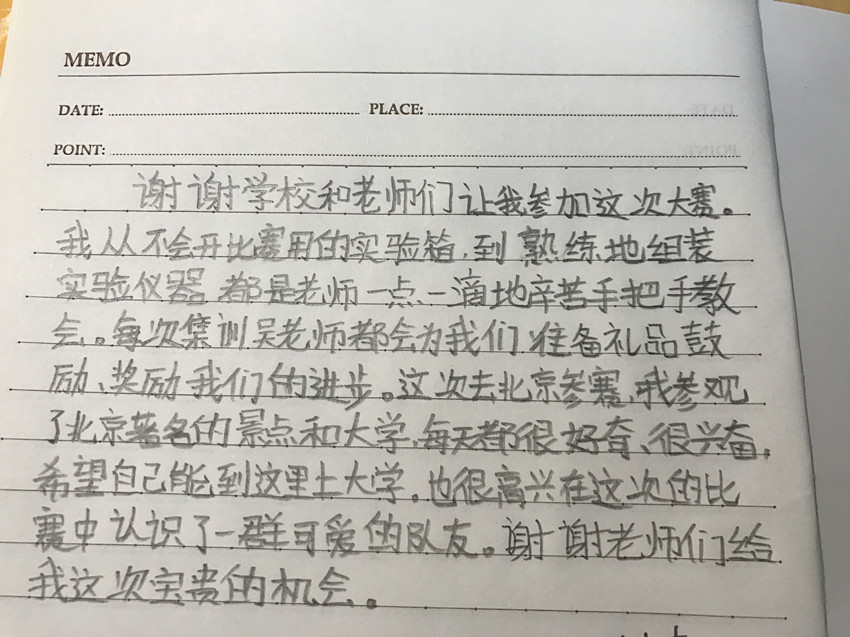 MEMO
DATE:
PLACE:
POINT:
谢谢学校和老师们让我参加这次大赛。
我从不会开比赛用的实验箱，到熟练地组装
实验仪器都是老师一点一滴地辛苦手把手教
会。每次集训吴老师都会为我们准备礼品鼓
励、奖励我们的进步。这次去北京参赛，我参观
了北京著名的景点和大学，每天都很好奇、很兴奋，
希望自己能到这里上大学，也很高兴在这次的比
赛中认识了一群可爱的队友。谢谢老师们给
我这次宝贵的机会。